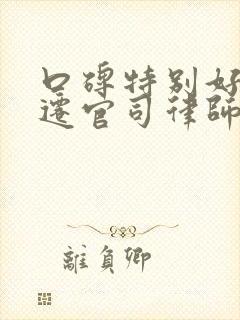 口碑特别好
迁官司律師
離負卿